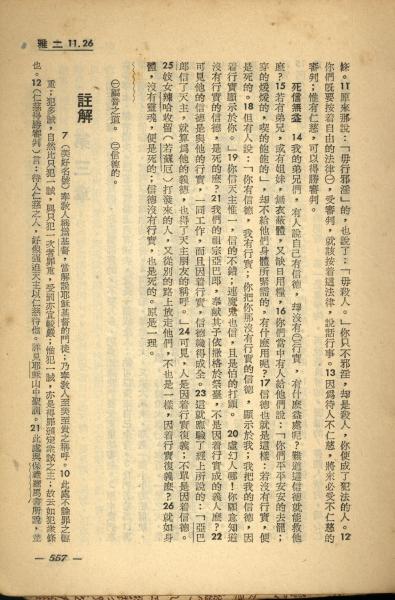 雅 士 11.26
條。11原來那說：「毋行邪淫」的，也說了：「毋殺人。」你只不邪淫，却是殺人，你便成了犯法的人。12
你們既要按着自由的法律㊀，受審判，就該按着這法律，說話行事。13因爲待人不仁慈，將來必受不仁慈的
審判；惟有仁慈，可以得勝審判。
死信無益 14我的弟兄們，有人說自己有信德，却沒有㊁行實，有什麽益處呢？難道這信德就能救他
麽？15若有弟兄，或有姐妹，鐵衣蔽體，又缺日用糧，16你們當中有人給他們說：「你們平平安安的去罷；
穿的煖煖的，喫的飽飽的」，却不給他們身體所緊需的，有什麽用呢？17信德也就是這樣：若沒有行實，便
是死的。18但有人說：「你有信德，我有行實；你把你那沒有行實的信德，顯示於我；我把我的信德，因
着行實顯示於你。」19你信天主惟一，信的不錯；連魔鬼也信，且是怕的打顫。20虛幻人哪！你願意知道
沒有行實的信德，是死的麽？21我們的祖宗亞巴郎，奉獻其子依撒格於祭臺，不是因着行實成的義人麽？22
可見他的信德是與他的行實，一同工作，而且因着行實，信德纔得成全。23這就應驗了經上所說的：「亞巴
郎信了天主，就算爲他的義德，也得了天主朋友的稱呼。」24可見，人是因着行實復義；不單是因着信德。
25妓女辣哈收留（若蘇厄）打發來的人，又從別的路上放走他們，不也是一樣，因着行實復義麽？26就如身
體，沒有靈魂，便是死的；信德沒有行實，也是死的。原是一理。
㊀福音之法。 ㊁信德的。
註解
7（美好名號）奉敎人稱爲基督，當解說耶穌基督的門徒；乃奉敎人至美至貴之稱呼。10此處不論罪之輕
重；犯多誡，自然比只犯一誡，與只犯一次者罪重，受罰亦宜較嚴；惟犯一誡，亦是得罪頒定衆誡之主；故云如犯衆條
也。12（仁慈得勝審判）言：待人仁慈之人，好像強迫天主以仁慈待他。詳見耶穌山中聖訓。21此處與保祿羅馬書所說，並
— 557 —